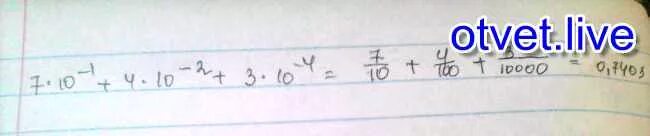 otvet.live
7·10⁻¹ + 4·10⁻² + 3·10⁻⁴ = 7/10 + 4/100 + 3/10000 = 0,7403